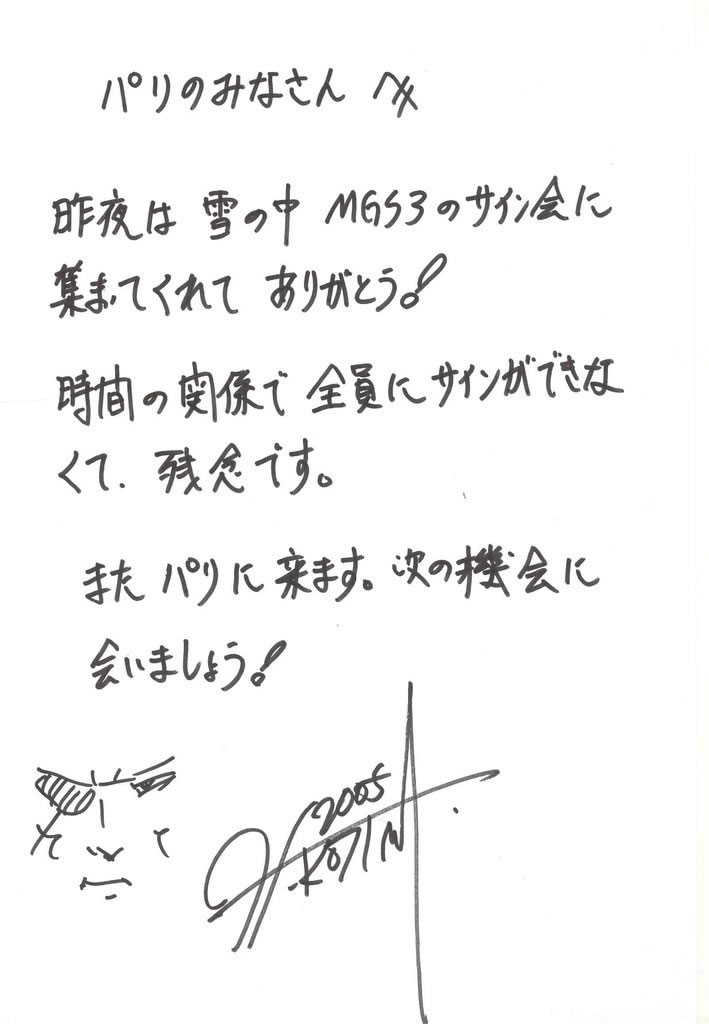 パリのみなさんへ
昨夜は 雪の中 MGS3のサイン会に
集まってくれて ありがとう!
時間の関係で 全員にサインができな
くて、残念です。
また パリに来ます。次の機会に
会いましょう!
2005
KOJIMA